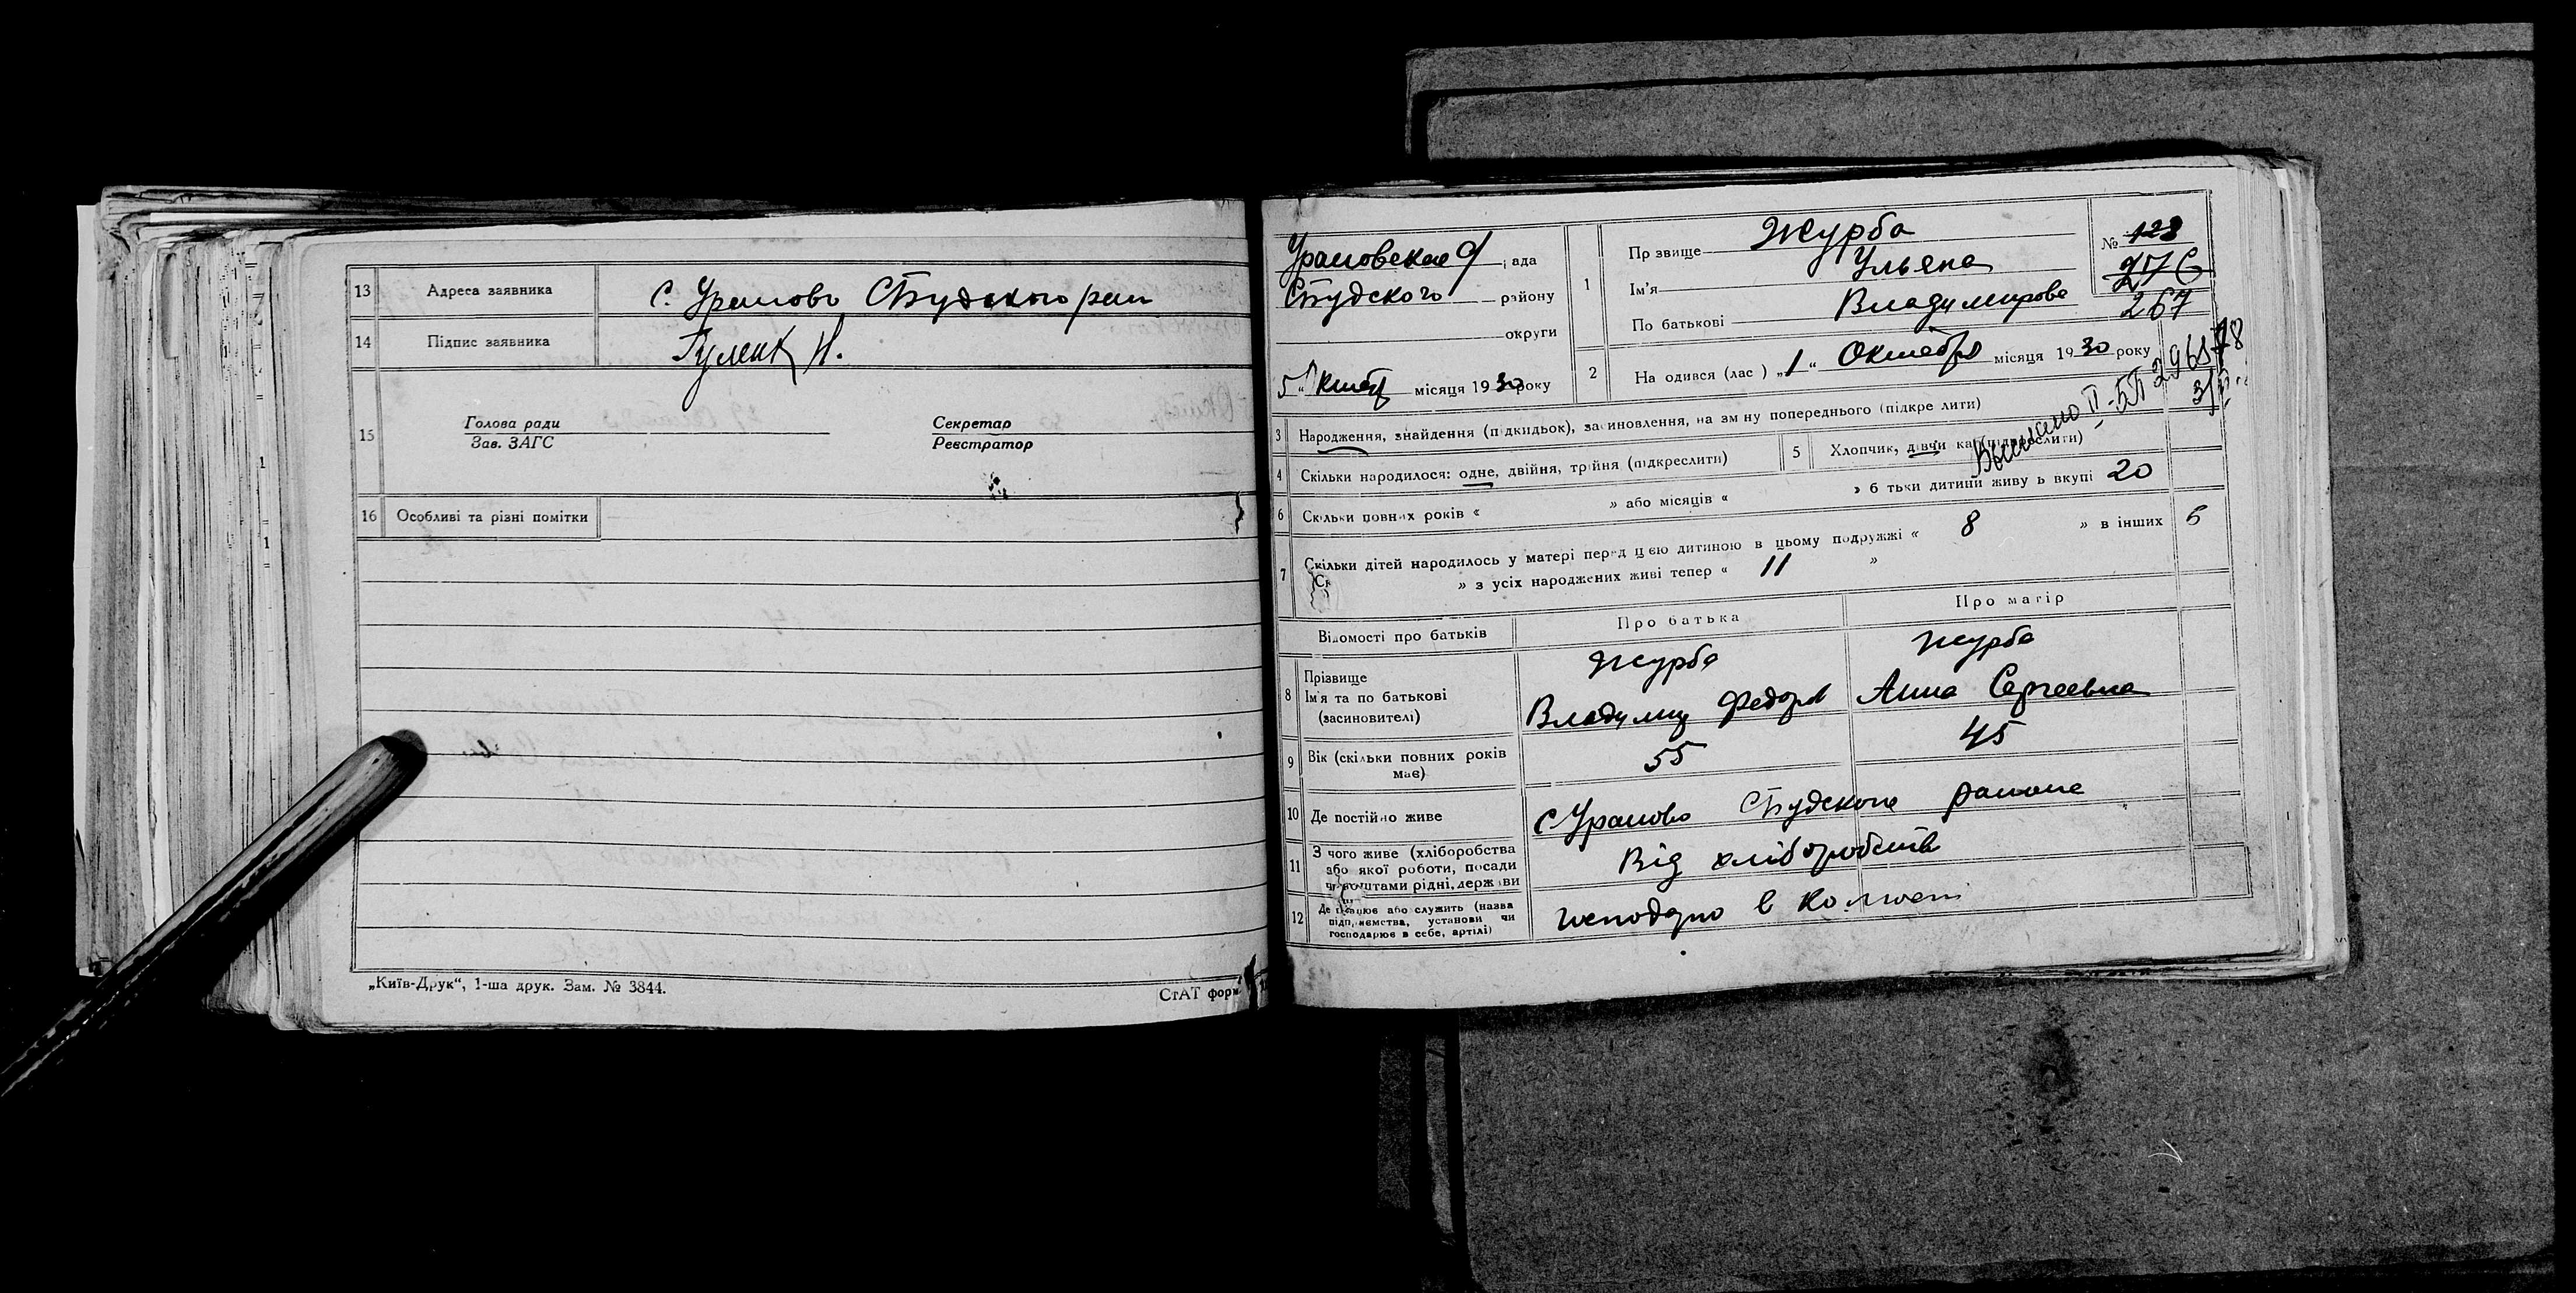 13 Адреса заявника С. Урамово Студского рай
14 Підпис заявника Гуленк Н.
15 Голова ради Секретар
Зав. ЗАГС Реєстратор
16 Особливі та різні помітки
„Київ-Друк“, 1-ша друк. Зам. № 3844.
СтАТ форм
Урамовская ада
Студского району
округи
5 „ Октяб місяця 1930 року
1 Пр звище Журба
Ім'я Ульяна
По батькові Владимирова
№ 123
276
267
2 На одився (лас ) „1“ Октября місяця 1930 року
3 Народження, знайдення (підкидьок), засиновлення, на зм ну попереднього (підкре лити)
4 Скільки народилося: одне, двійня, трійня (підкреслити)
5 Хлопчик, дівчи ка (підкреслити)
6 Скільки повних років « » або місяців « » б тьки дитини живу ь вкупі 20
7 Скільки дітей народилось у матері перед цією дитиною в цьому подружжі « 8 » в інших 6
Ск » з усіх народжених живі тепер « 11 »
Відомості про батьків Про батька Про матір
8 Прізвище Журба Журба
Ім'я та по батькові
(засиновителі) Владимир Федоров Анна Сергеевна
9 Вік (скільки повних років має) 55 45
10 Де постійно живе с Урамово Студского района
11 З чого живе (хліборобства
або якої роботи, посади
чи коштами рідні, держави Від хліборобств
12 Де працює або служить (назва
підприємства, установи чи
господарює в себе, артілі) в